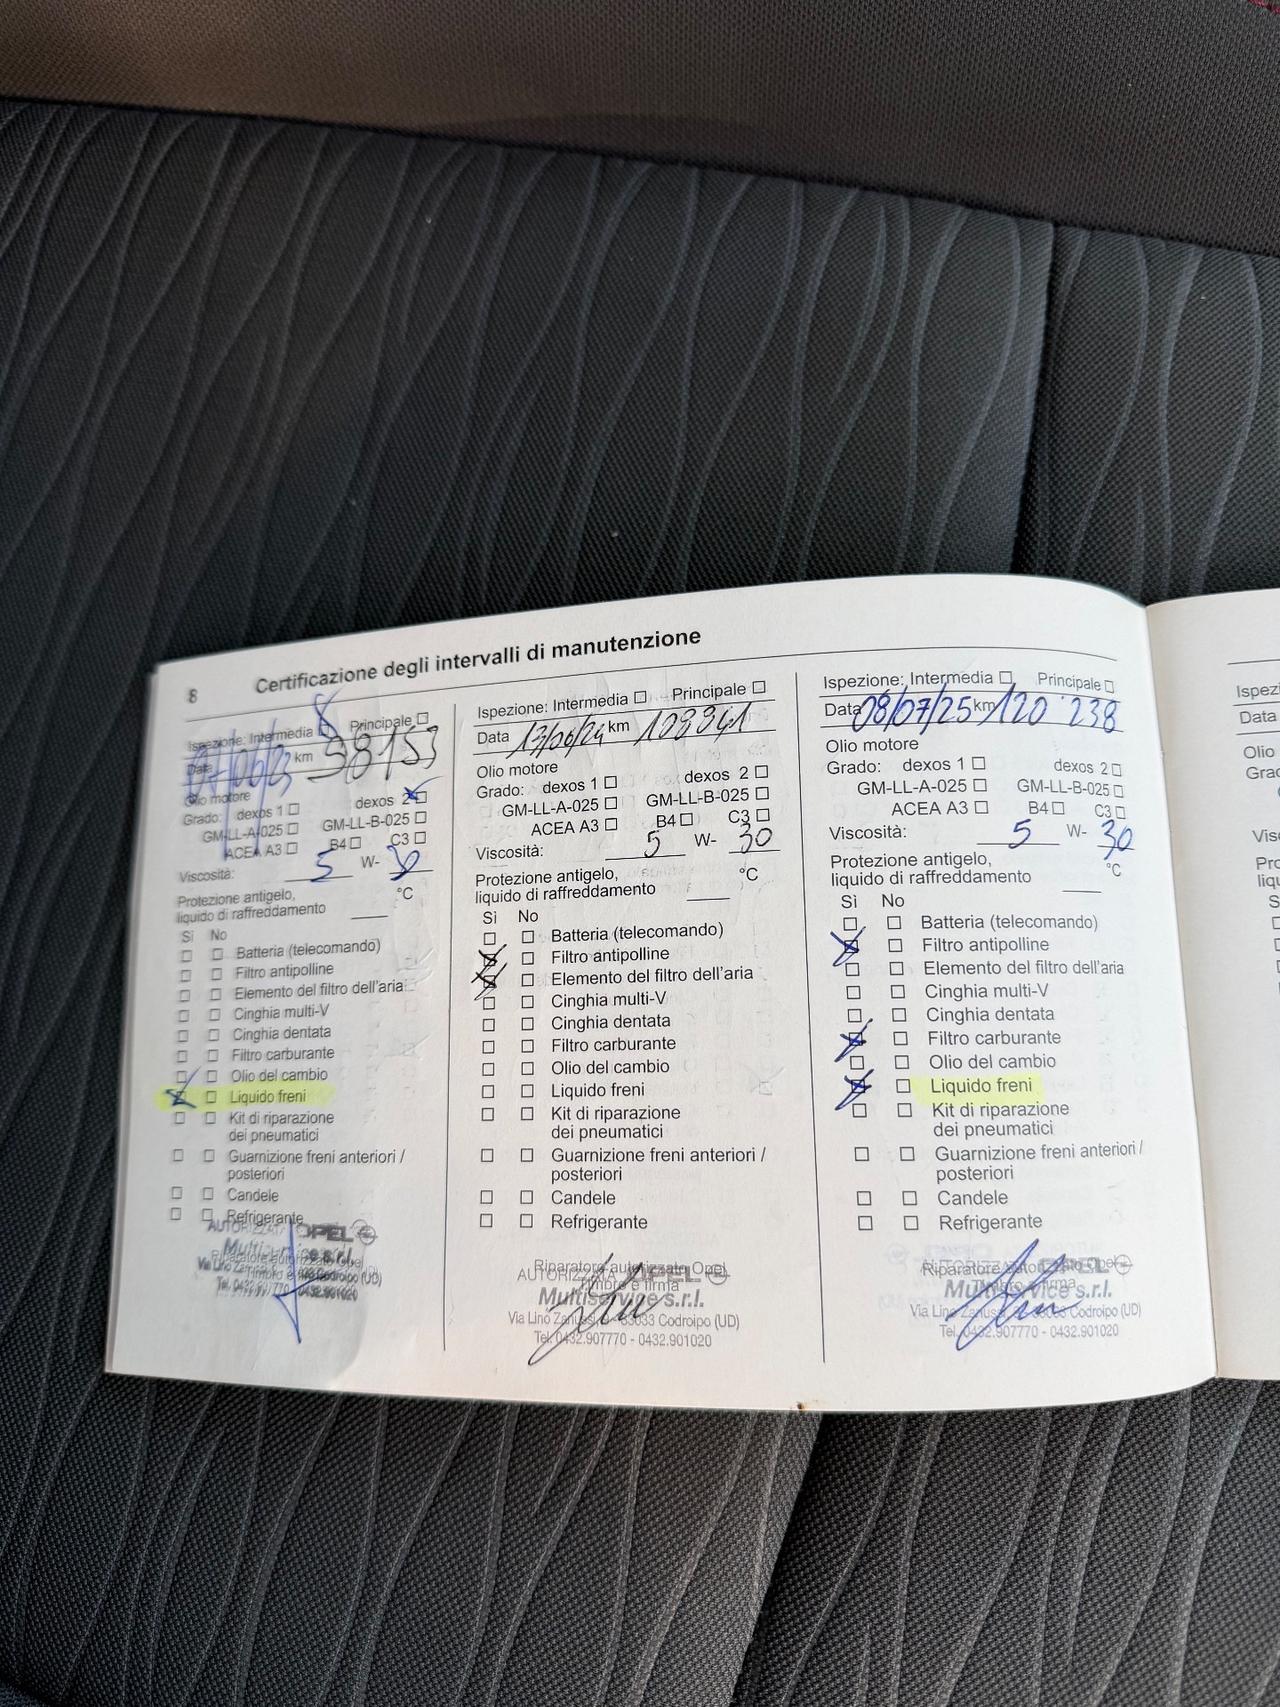 8 Certificazione degli intervalli di manutenzione
Ispezione: Intermedia Principale
Data 07/06/23 km 98153
Olio motore
Grado: dexos 1 dexos 2
GM-LL-A-025 GM-LL-B-025
ACEA A3 B4 C3
Viscosità: 5 W- 30
Protezione antigelo,
liquido di raffreddamento °C
Sì No
Batteria (telecomando)
Filtro antipolline
Elemento del filtro dell'aria
Cinghia multi-V
Cinghia dentata
Filtro carburante
Olio del cambio
Liquido freni
Kit di riparazione
dei pneumatici
Guarnizione freni anteriori /
posteriori
Candele
Refrigerante
Riparatore autorizzato Opel
Timbro e firma
OPEL
Multiservice s.r.l.
Codroipo (UD)
Tel. 0432.907770 - 0432.901020
Ispezione: Intermedia Principale
Data 13/06/24 km 108941
Olio motore
Grado: dexos 1 dexos 2
GM-LL-A-025 GM-LL-B-025
ACEA A3 B4 C3
Viscosità: 5 W- 30
Protezione antigelo,
liquido di raffreddamento °C
Sì No
Batteria (telecomando)
Filtro antipolline
Elemento del filtro dell'aria
Cinghia multi-V
Cinghia dentata
Filtro carburante
Olio del cambio
Liquido freni
Kit di riparazione
dei pneumatici
Guarnizione freni anteriori /
posteriori
Candele
Refrigerante
Riparatore autorizzato Opel
Timbro e firma
OPEL
Multiservice s.r.l.
Via Lino Zanussi, 33033 Codroipo (UD)
Tel. 0432.907770 - 0432.901020
Ispezione: Intermedia Principale
Data 08/07/25 km 120'238
Olio motore
Grado: dexos 1 dexos 2
GM-LL-A-025 GM-LL-B-025
ACEA A3 B4 C3
Viscosità: 5 W- 30
Protezione antigelo,
liquido di raffreddamento °C
Sì No
Batteria (telecomando)
Filtro antipolline
Elemento del filtro dell'aria
Cinghia multi-V
Cinghia dentata
Filtro carburante
Olio del cambio
Liquido freni
Kit di riparazione
dei pneumatici
Guarnizione freni anteriori /
posteriori
Candele
Refrigerante
Riparatore autorizzato Opel
Timbro e firma
Multiservice s.r.l.
Via Lino Zanussi, Codroipo (UD)
Tel. 0432.907770 - 0432.901020
Data
Olio